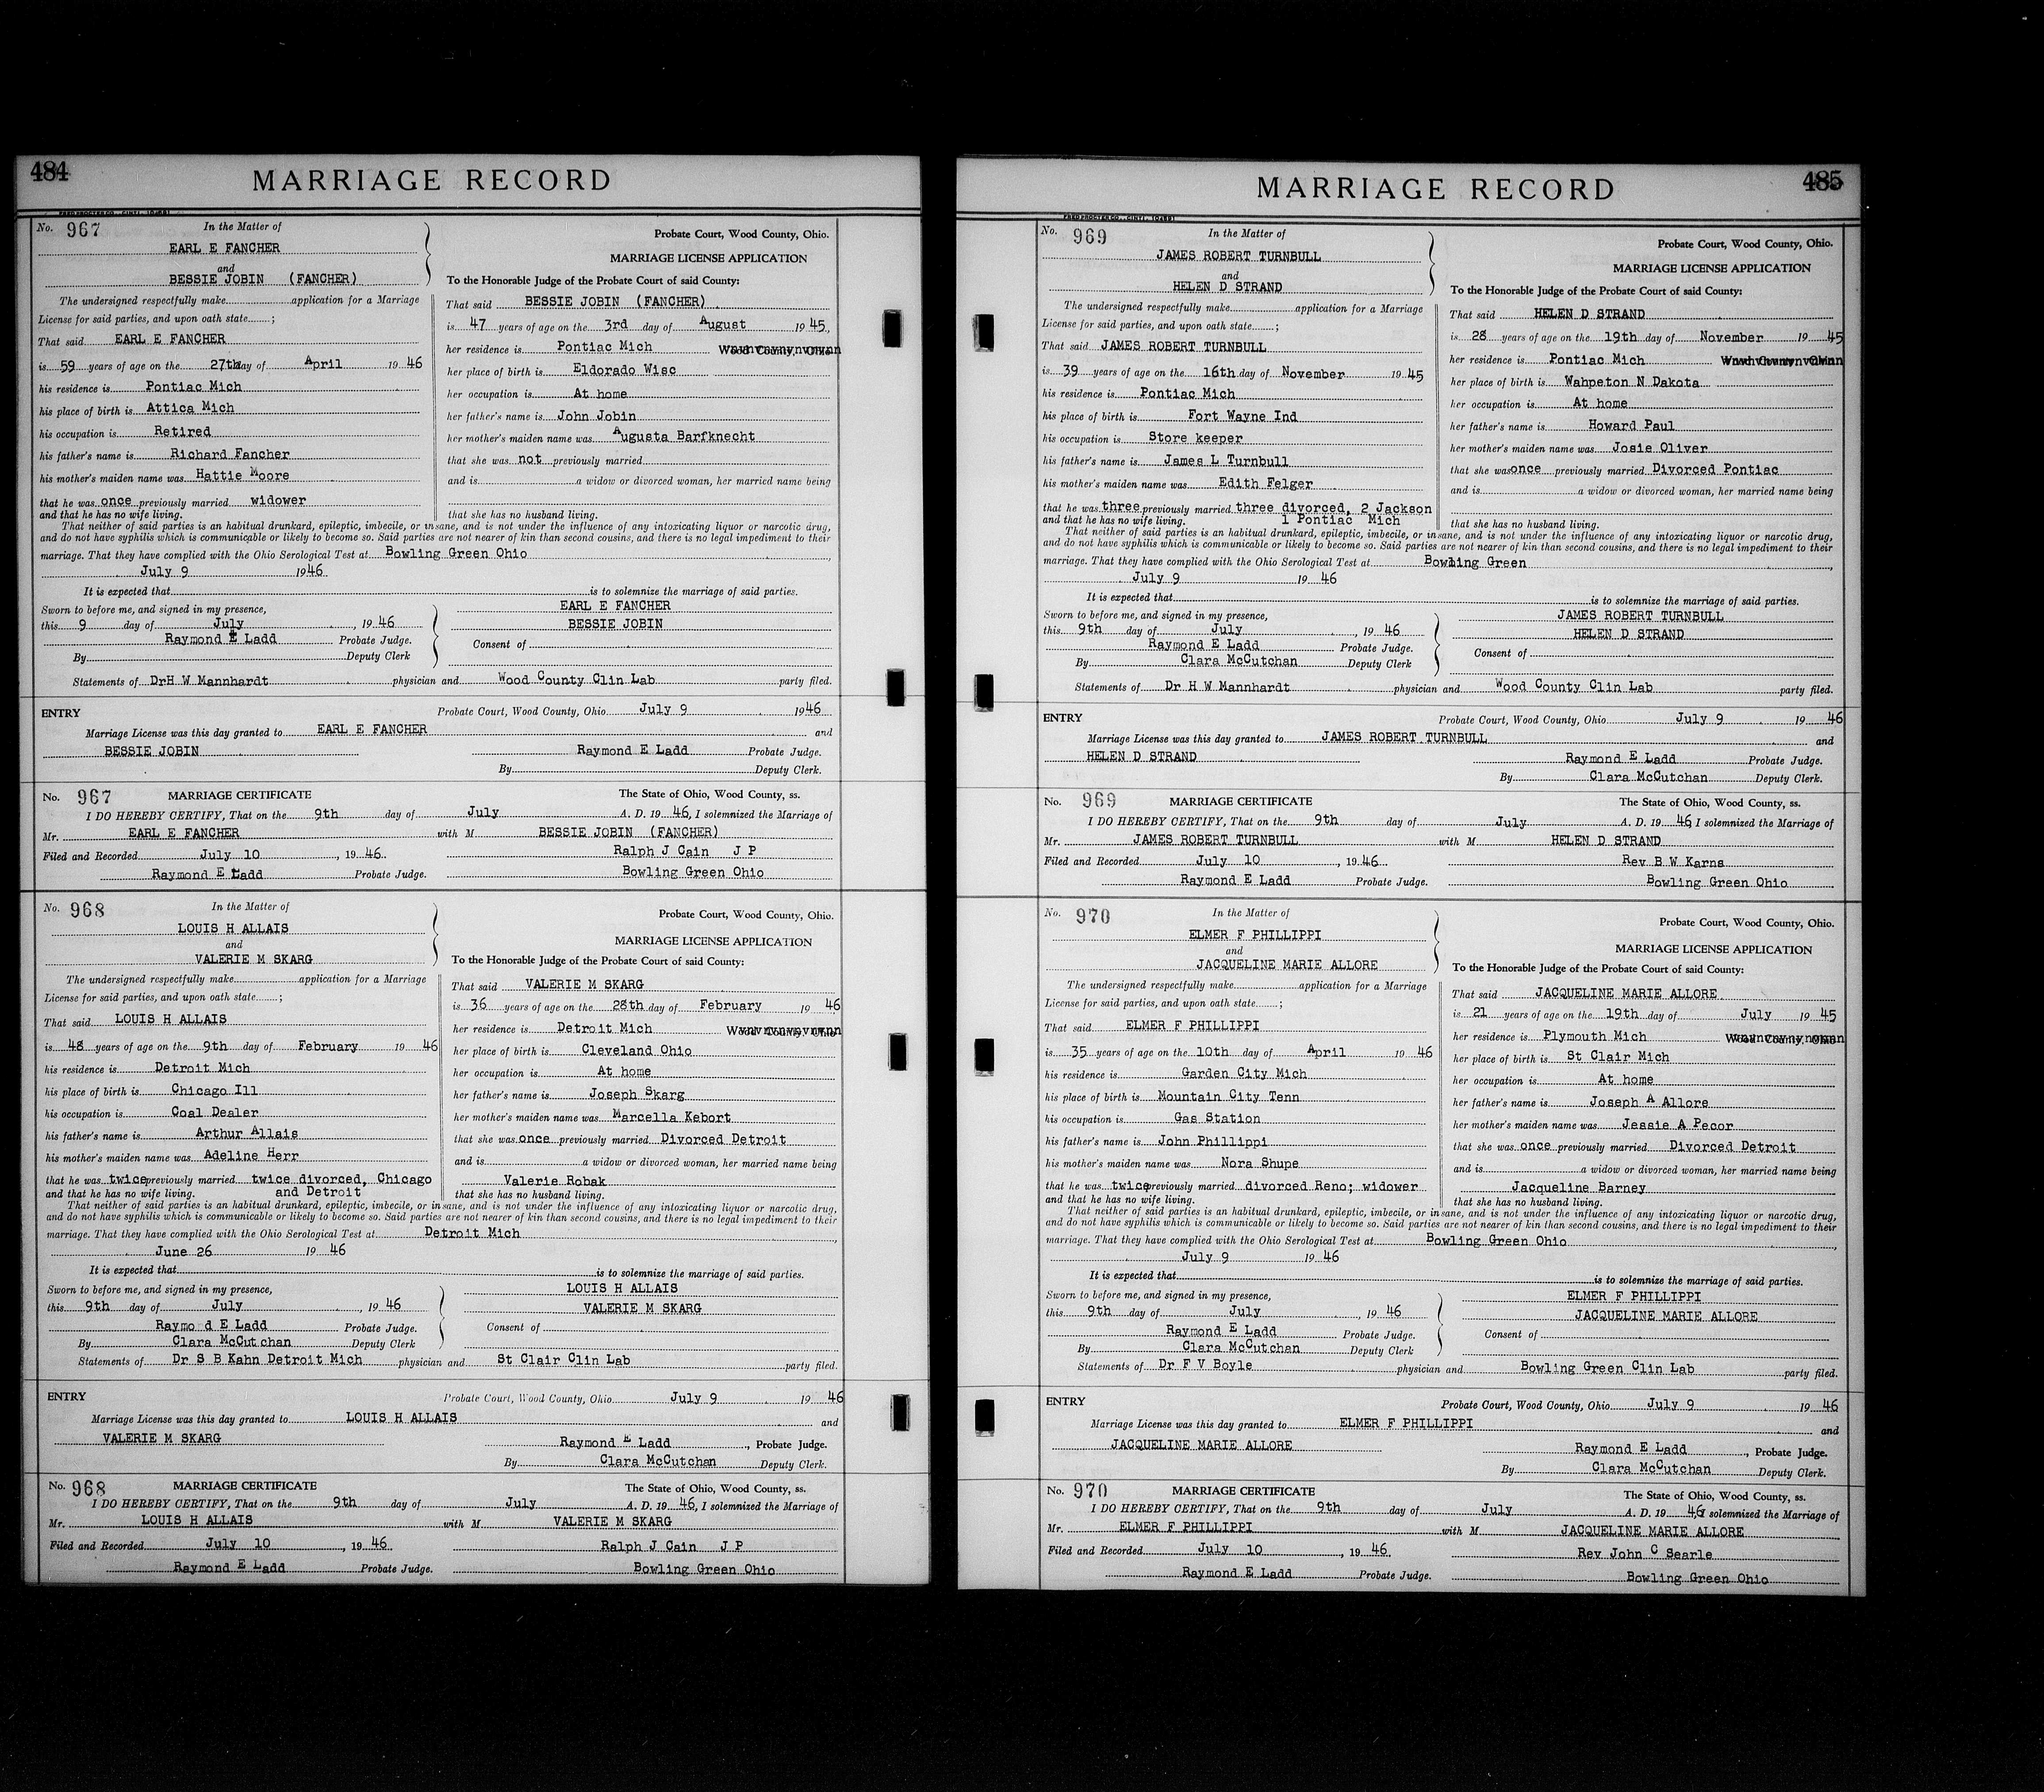 484
MARRIAGE RECORD
FRED PROCTER CO., CINTI. 104681
No. 967 In the Matter of
EARL E FANCHER
and
BESSIE JOBIN (FANCHER)
The undersigned respectfully make application for a Marriage
License for said parties, and upon oath state ;
That said EARL E FANCHER
is 59 years of age on the 27th day of April 1946
his residence is Pontiac Mich
his place of birth is Attica Mich
his occupation is Retired
his father's name is Richard Fancher
his mother's maiden name was Hattie Moore
that he was once previously married widower
and that he has no wife living.
Probate Court, Wood County, Ohio.
MARRIAGE LICENSE APPLICATION
To the Honorable Judge of the Probate Court of said County:
That said BESSIE JOBIN (FANCHER)
is 47 years of age on the 3rd day of August 1945,
her residence is Pontiac Mich
her place of birth is Eldorado Wisc
her occupation is At home
her father's name is John Jobin
her mother's maiden name was Augusta Barfknecht
that she was not previously married
and is a widow or divorced woman, her married name being
that she has no husband living.
That neither of said parties is an habitual drunkard, epileptic, imbecile, or insane, and is not under the influence of any intoxicating liquor or narcotic drug,
and do not have syphilis which is communicable or likely to become so. Said parties are not nearer of kin than second cousins, and there is no legal impediment to their
marriage. That they have complied with the Ohio Serological Test at Bowling Green Ohio
July 9 1946
It is expected that is to solemnize the marriage of said parties.
Sworn to before me, and signed in my presence,
this 9 day of July , 1946
Raymond E Ladd Probate Judge.
By Deputy Clerk
EARL E FANCHER
BESSIE JOBIN
Consent of
Statements of DrH W Mannhardt physician and Wood County Clin Lab party filed.
ENTRY Probate Court, Wood County, Ohio July 9 1946
Marriage License was this day granted to EARL E FANCHER and
BESSIE JOBIN Raymond E Ladd Probate Judge.
By Deputy Clerk.
No. 967 MARRIAGE CERTIFICATE The State of Ohio, Wood County, ss.
I DO HEREBY CERTIFY, That on the 9th day of July A. D. 1946, I solemnized the Marriage of
Mr. EARL E FANCHER with M BESSIE JOBIN (FANCHER)
Filed and Recorded July 10 , 1946. Ralph J Cain J P
Raymond E Ladd Probate Judge. Bowling Green Ohio
No. 968 In the Matter of
LOUIS H ALLAIS
and
VALERIE M SKARG
The undersigned respectfully make application for a Marriage
License for said parties, and upon oath state ;
That said LOUIS H ALLAIS
is 48 years of age on the 9th day of February 1946
his residence is Detroit Mich
his place of birth is Chicago Ill
his occupation is Coal Dealer
his father's name is Arthur Allais
his mother's maiden name was Adeline Herr
that he was twice previously married twice divorced, Chicago
and that he has no wife living. and Detroit
Probate Court, Wood County, Ohio.
MARRIAGE LICENSE APPLICATION
To the Honorable Judge of the Probate Court of said County:
That said VALERIE M SKARG
is 36 years of age on the 28th day of February 1946
her residence is Detroit Mich
her place of birth is Cleveland Ohio
her occupation is At home
her father's name is Joseph Skarg
her mother's maiden name was Marcella Kebort
that she was once previously married Divorced Detroit
and is a widow or divorced woman, her married name being
Valerie Robak
that she has no husband living.
That neither of said parties is an habitual drunkard, epileptic, imbecile, or insane, and is not under the influence of any intoxicating liquor or narcotic drug,
and do not have syphilis which is communicable or likely to become so. Said parties are not nearer of kin than second cousins, and there is no legal impediment to their
marriage. That they have complied with the Ohio Serological Test at Detroit Mich
June 26 1946
It is expected that is to solemnize the marriage of said parties.
Sworn to before me, and signed in my presence,
this 9th day of July , 1946
Raymo d E Ladd Probate Judge.
By Clara McCutchan Deputy Clerk
LOUIS H ALLAIS
VALERIE M SKARG
Consent of
Statements of Dr S B Kahn Detroit Mich physician and St Clair Clin Lab party filed.
ENTRY Probate Court, Wood County, Ohio July 9 1946
Marriage License was this day granted to LOUIS H ALLAIS and
VALERIE M SKARG Raymond E Ladd , Probate Judge.
By Clara McCutchan Deputy Clerk.
No. 968 MARRIAGE CERTIFICATE The State of Ohio, Wood County, ss.
I DO HEREBY CERTIFY, That on the 9th day of July A. D. 1946, I solemnized the Marriage of
Mr. LOUIS H ALLAIS with M VALERIE M SKARG
Filed and Recorded July 10 , 1946. Ralph J Cain J P
Raymond E Ladd Probate Judge. Bowling Green Ohio
485
MARRIAGE RECORD
FRED PROCTER CO., CINTI. 104681
No. 969 In the Matter of
JAMES ROBERT TURNBULL
and
HELEN D STRAND
The undersigned respectfully make application for a Marriage
License for said parties, and upon oath state ;
That said JAMES ROBERT TURNBULL
is 39 years of age on the 16th day of November 1945
his residence is Pontiac Mich
his place of birth is Fort Wayne Ind
his occupation is Store keeper
his father's name is James L Turnbull
his mother's maiden name was Edith Felger
that he was three previously married three divorced, 2 Jackson
and that he has no wife living. 1 Pontiac Mich
Probate Court, Wood County, Ohio.
MARRIAGE LICENSE APPLICATION
To the Honorable Judge of the Probate Court of said County:
That said HELEN D STRAND
is 28 years of age on the 19th day of November 1945
her residence is Pontiac Mich
her place of birth is Wahpeton N Dakota
her occupation is At home
her father's name is Howard Paul
her mother's maiden name was Josie Oliver
that she was once previously married Divorced Pontiac
and is a widow or divorced woman, her married name being
that she has no husband living.
That neither of said parties is an habitual drunkard, epileptic, imbecile, or insane, and is not under the influence of any intoxicating liquor or narcotic drug,
and do not have syphilis which is communicable or likely to become so. Said parties are not nearer of kin than second cousins, and there is no legal impediment to their
marriage. That they have complied with the Ohio Serological Test at Bowling Green
July 9 1946
It is expected that is to solemnize the marriage of said parties.
Sworn to before me, and signed in my presence,
this 9th day of July , 1946
Raymond E Ladd Probate Judge.
By Clara McCutchan Deputy Clerk
JAMES ROBERT TURNBULL
HELEN D STRAND
Consent of
Statements of Dr H W Mannhardt physician and Wood County Clin Lab party filed.
ENTRY Probate Court, Wood County, Ohio July 9 1946
Marriage License was this day granted to JAMES ROBERT TURNBULL and
HELEN D STRAND Raymond E Ladd Probate Judge.
By Clara McCutchan Deputy Clerk.
No. 969 MARRIAGE CERTIFICATE The State of Ohio, Wood County, ss.
I DO HEREBY CERTIFY, That on the 9th day of July A. D. 1946, I solemnized the Marriage of
Mr. JAMES ROBERT TURNBULL with M HELEN D STRAND
Filed and Recorded July 10 , 1946. Rev B W Karns
Raymond E Ladd Probate Judge. Bowling Green Ohio
No. 970 In the Matter of
ELMER F PHILLIPPI
and
JACQUELINE MARIE ALLORE
The undersigned respectfully make application for a Marriage
License for said parties, and upon oath state ;
That said ELMER F PHILLIPPI
is 35 years of age on the 10th day of April 1946
his residence is Garden City Mich
his place of birth is Mountain City Tenn
his occupation is Gas Station
his father's name is John Phillippi
his mother's maiden name was Nora Shupe
that he was twice previously married divorced Reno; widower
and that he has no wife living.
Probate Court, Wood County, Ohio.
MARRIAGE LICENSE APPLICATION
To the Honorable Judge of the Probate Court of said County:
That said JACQUELINE MARIE ALLORE
is 21 years of age on the 19th day of July 1945
her residence is Plymouth Mich
her place of birth is St Clair Mich
her occupation is At home
her father's name is Joseph A Allore
her mother's maiden name was Jessie A Pecor
that she was once previously married Divorced Detroit
and is a widow or divorced woman, her married name being
Jacqueline Barney
that she has no husband living.
That neither of said parties is an habitual drunkard, epileptic, imbecile, or insane, and is not under the influence of any intoxicating liquor or narcotic drug,
and do not have syphilis which is communicable or likely to become so. Said parties are not nearer of kin than second cousins, and there is no legal impediment to their
marriage. That they have complied with the Ohio Serological Test at Bowling Green Ohio
July 9 1946
It is expected that is to solemnize the marriage of said parties.
Sworn to before me, and signed in my presence,
this 9th day of July 1946
Raymond E Ladd Probate Judge.
By Clara McCutchan Deputy Clerk
ELMER F PHILLIPPI
JACQUELINE MARIE ALLORE
Consent of
Statements of Dr F V Boyle physician and Bowling Green Clin Lab party filed.
ENTRY Probate Court, Wood County, Ohio July 9 1946
Marriage License was this day granted to ELMER F PHILLIPPI and
JACQUELINE MARIE ALLORE Raymond E Ladd , Probate Judge.
By Clara McCutchan Deputy Clerk.
No. 970 MARRIAGE CERTIFICATE The State of Ohio, Wood County, ss.
I DO HEREBY CERTIFY, That on the 9th day of July A. D. 1946, I solemnized the Marriage of
Mr. ELMER F PHILLIPPI with M JACQUELINE MARIE ALLORE
Filed and Recorded July 10 , 1946. Rev John C Searle
Raymond E Ladd Probate Judge. Bowling Green Ohio